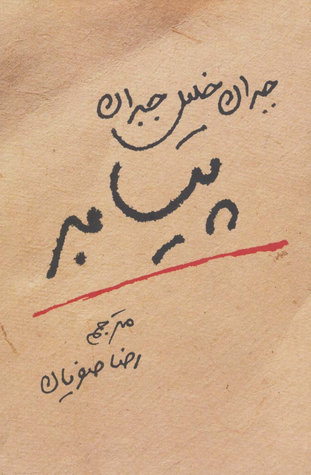 جبران خلیل جبران
پیامبر
مترجم
رضا صوفیان